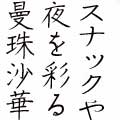 スナックや
夜を彩る
曼珠沙華